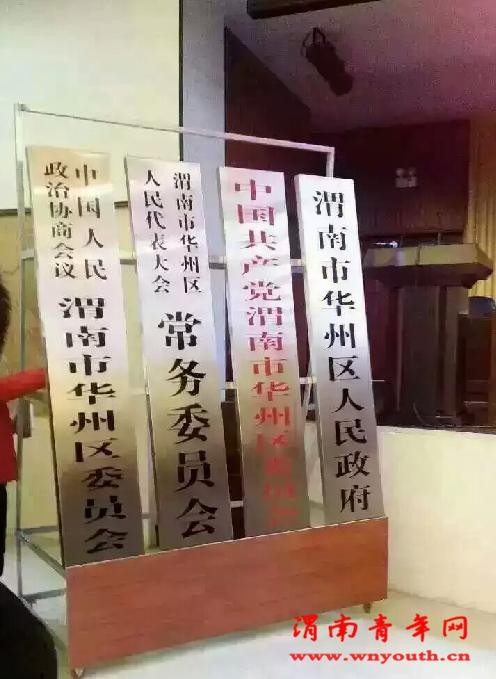 中国人民
政治协商会议
渭南市华州区委员会
渭南市华州区
人民代表大会
常务委员会
中国共产党渭南市华州区委员会
渭南市华州区人民政府
渭南青年网
www.wnyouth.cn